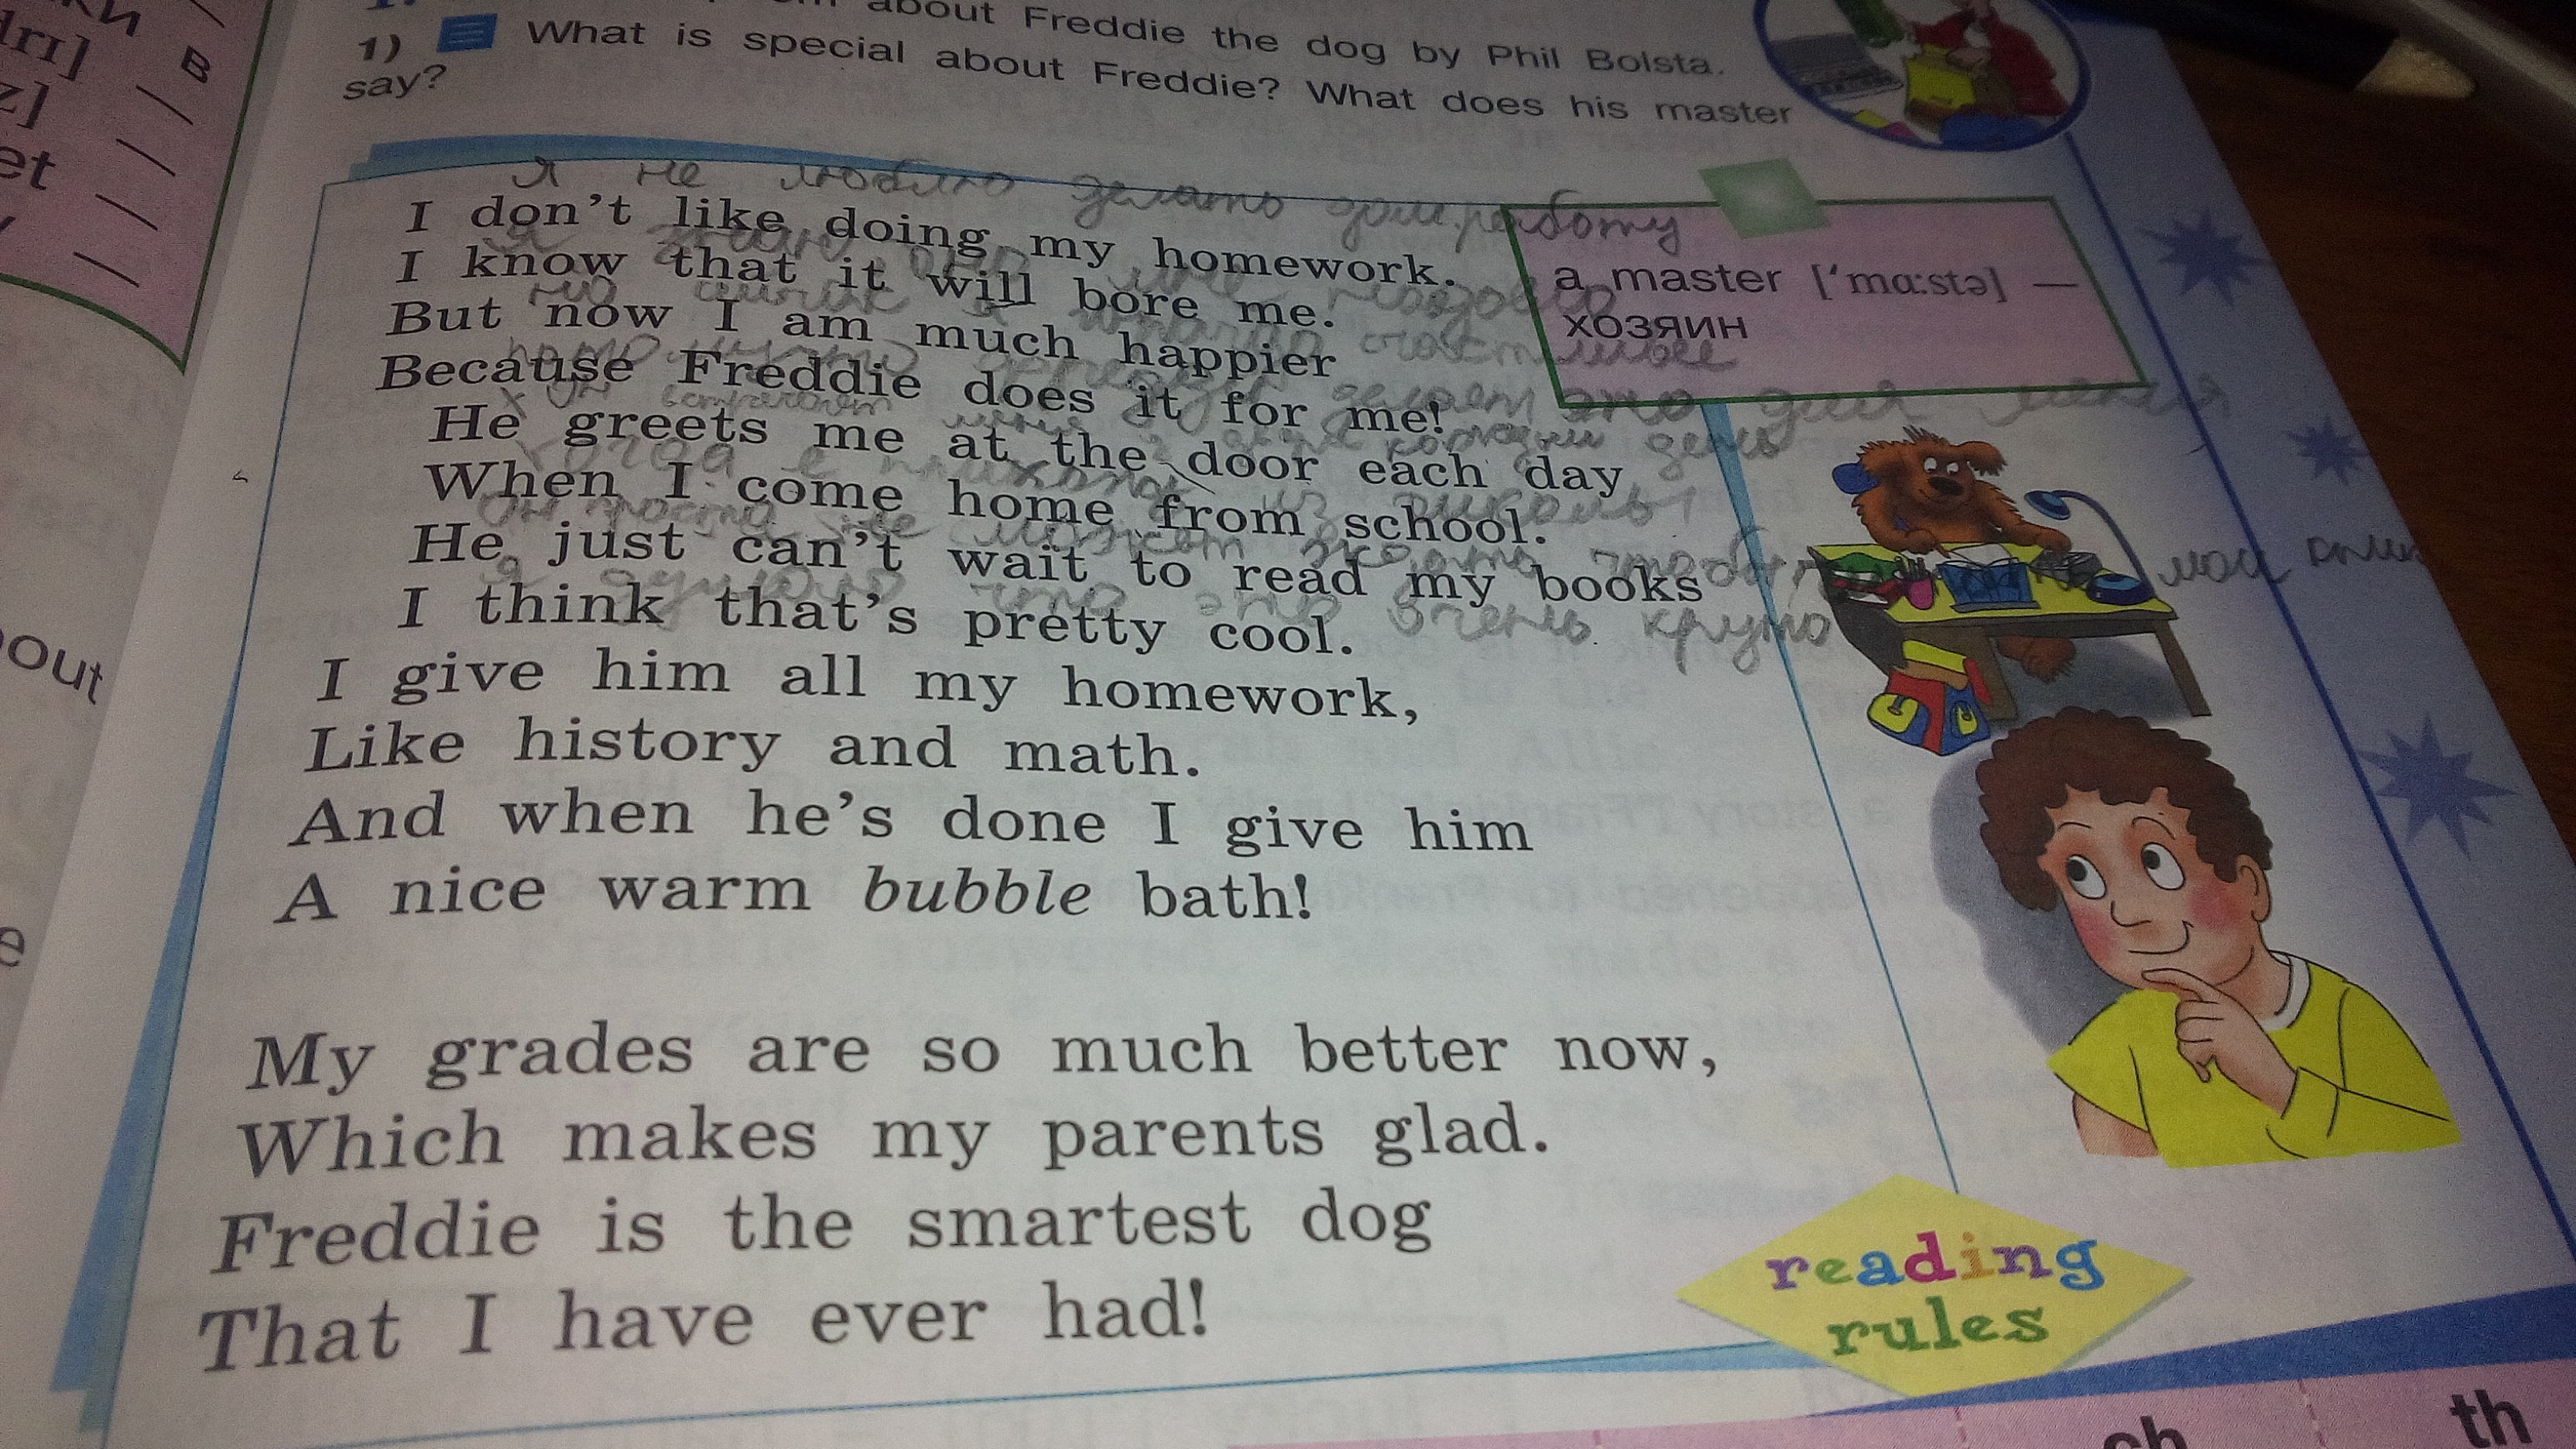 about Freddie the dog by Phil Bolsta.
1) What is special about Freddie? What does his master
say?
я не люблю делать дом. работу
I don't like doing my homework.
я знаю
I know that it will bore me.
But now I am much happier
счастливее
Because Freddie does it for me!
делает это для меня
He greets me at the door each day
каждый день
When I come home from school.
когда я из школы
He just can't wait to read my books
он просто не может ждать чтобы мои
I think that's pretty cool.
я думаю что это очень круто
I give him all my homework,
Like history and math.
And when he's done I give him
A nice warm bubble bath!
My grades are so much better now,
Which makes my parents glad.
Freddie is the smartest dog
That I have ever had!
a master [ˈmɑːstə] —
хозяин
reading
rules
В
out
ch
th